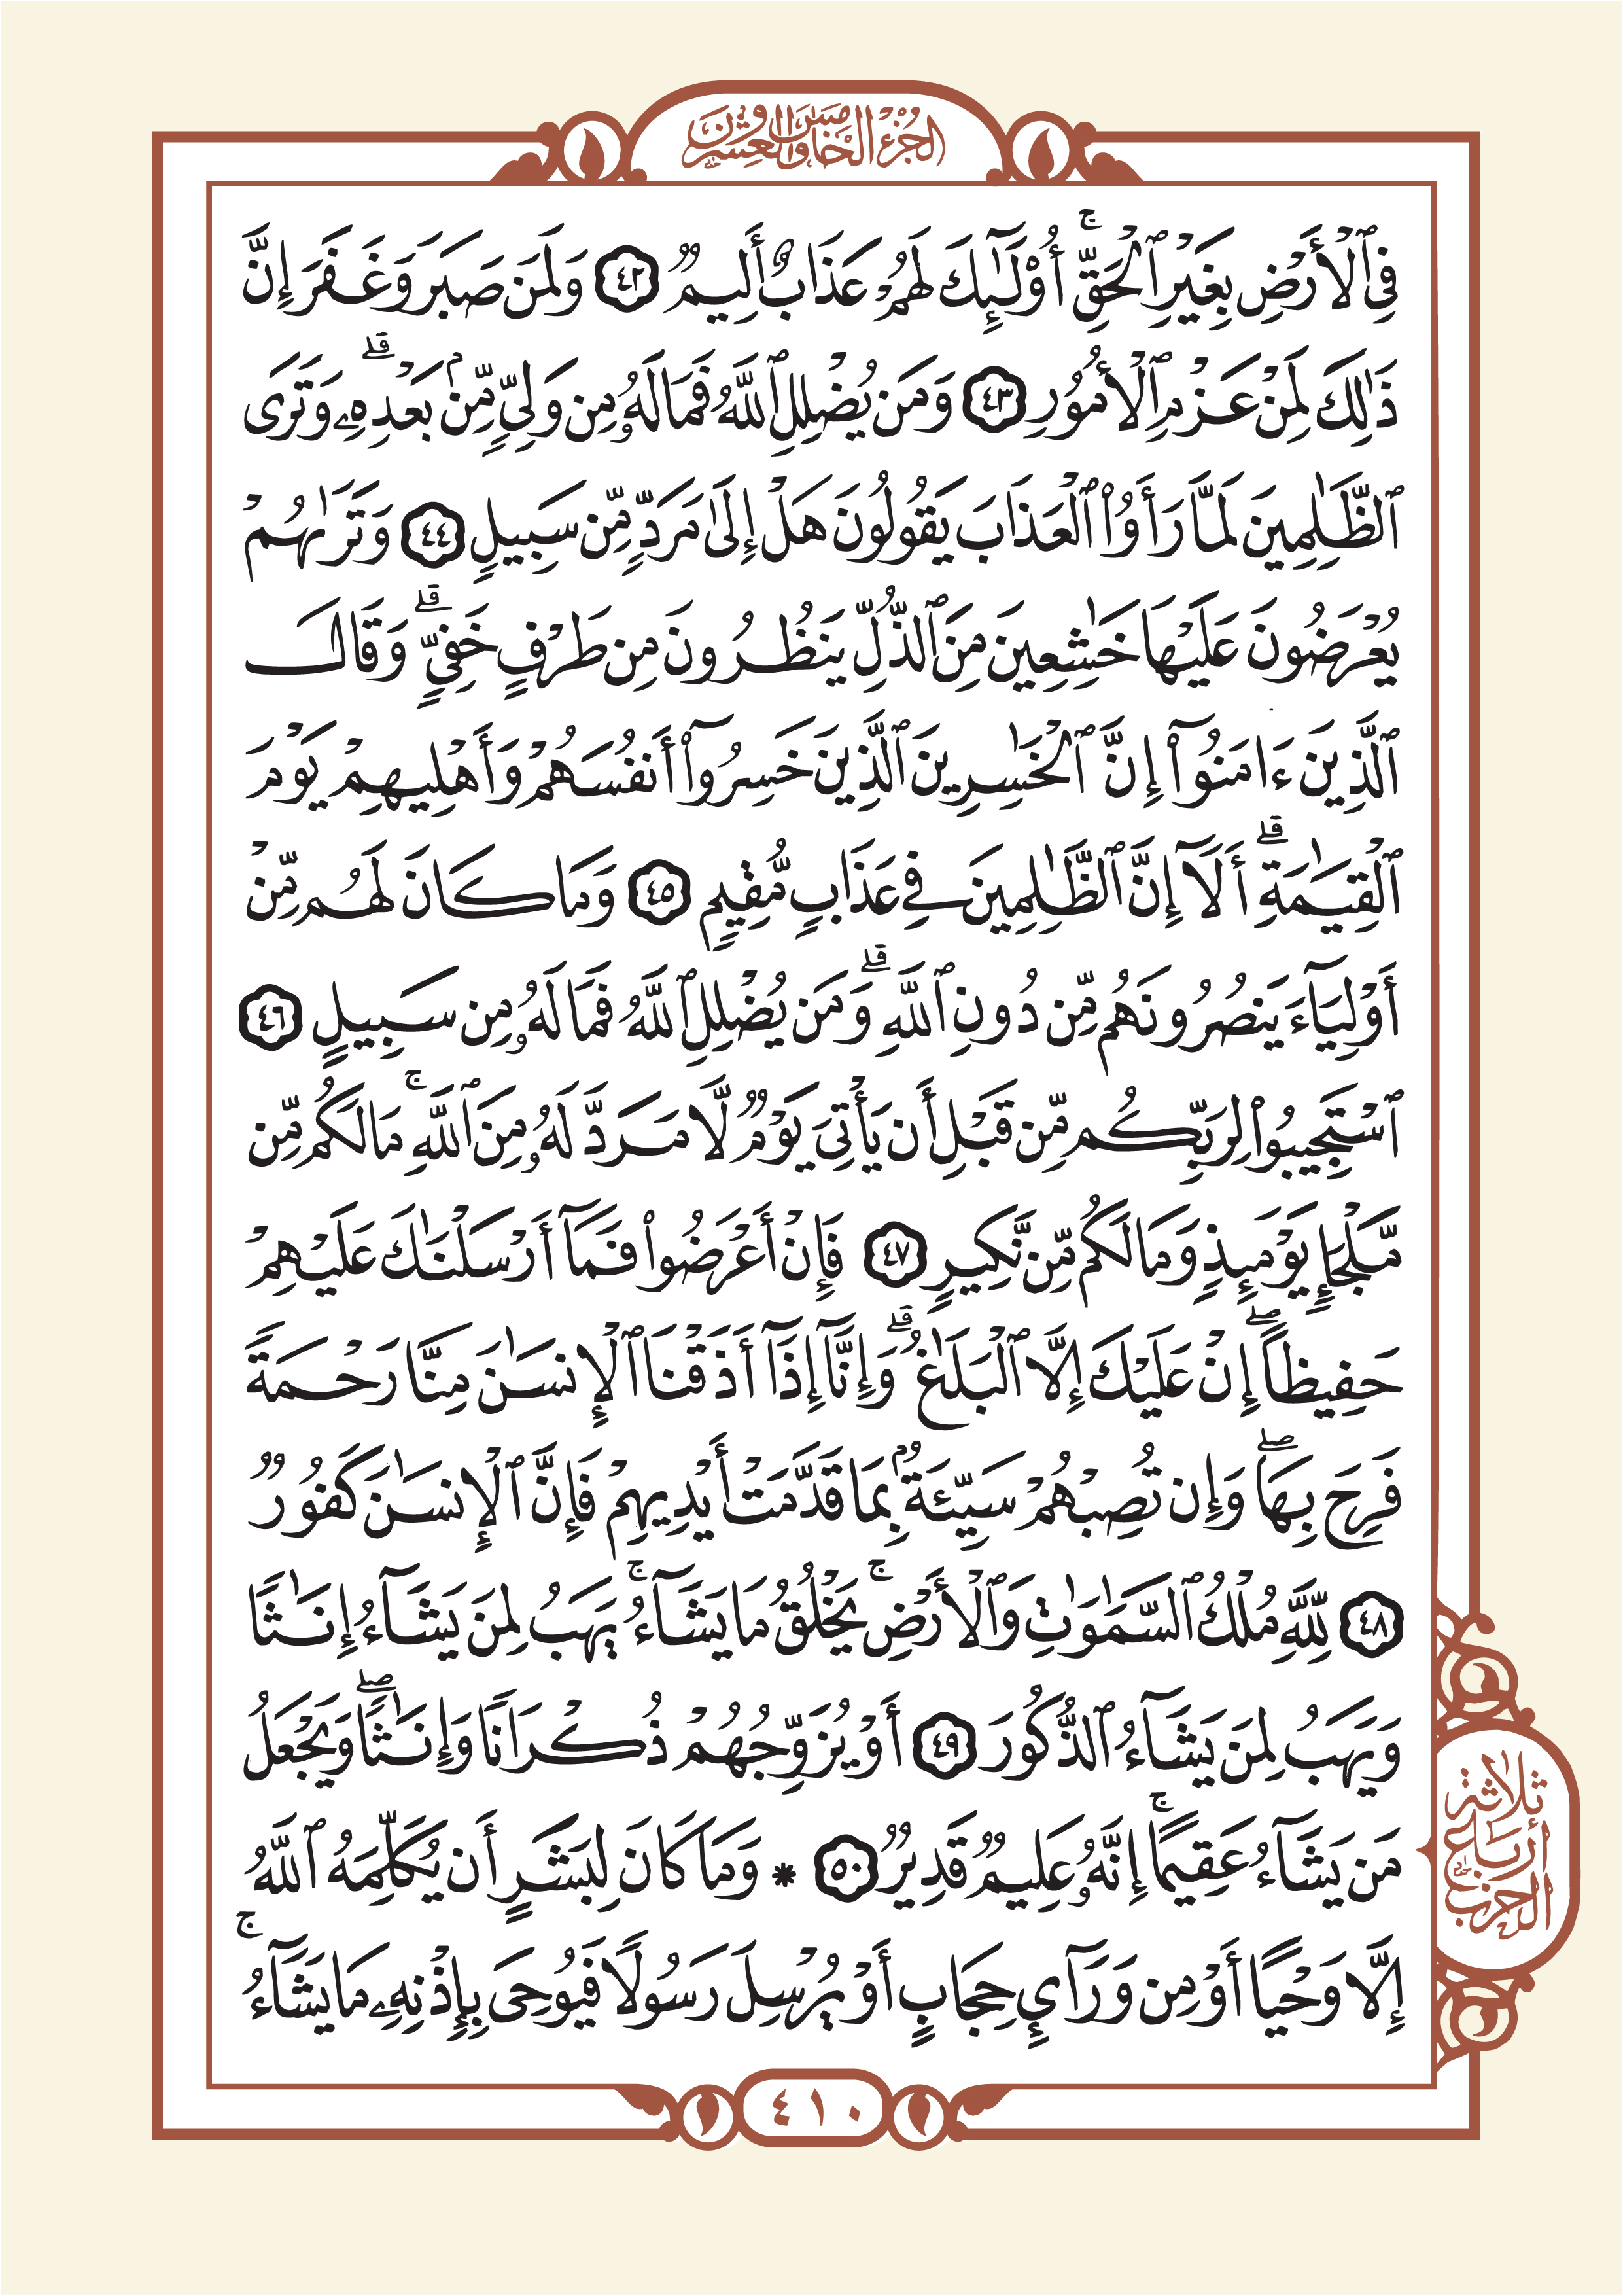 الجزء الخامس والعشرون
فِي ٱلۡأَرۡضِ بِغَيۡرِ ٱلۡحَقِّۚ أُوْلَٰٓئِكَ لَهُمۡ عَذَابٌ أَلِيمٞ ٤٢ وَلَمَن صَبَرَ وَغَفَرَ إِنَّ
ذَٰلِكَ لَمِنۡ عَزۡمِ ٱلۡأُمُورِ ٤٣ وَمَن يُضۡلِلِ ٱللَّهُ فَمَا لَهُۥ مِن وَلِيّٖ مِّنۢ بَعۡدِهِۦۗ وَتَرَى
ٱلظَّٰلِمِينَ لَمَّا رَأَوُاْ ٱلۡعَذَابَ يَقُولُونَ هَلۡ إِلَىٰ مَرَدّٖ مِّن سَبِيلٖ ٤٤ وَتَرَىٰهُمۡ
يُعۡرَضُونَ عَلَيۡهَا خَٰشِعِينَ مِنَ ٱلذُّلِّ يَنظُرُونَ مِن طَرۡفٍ خَفِيّٖۗ وَقَالَ
ٱلَّذِينَ ءَامَنُوٓاْ إِنَّ ٱلۡخَٰسِرِينَ ٱلَّذِينَ خَسِرُوٓاْ أَنفُسَهُمۡ وَأَهۡلِيهِمۡ يَوۡمَ
ٱلۡقِيَٰمَةِۗ أَلَآ إِنَّ ٱلظَّٰلِمِينَ فِي عَذَابٖ مُّقِيمٖ ٤٥ وَمَا كَانَ لَهُم مِّنۡ
أَوۡلِيَآءَ يَنصُرُونَهُم مِّن دُونِ ٱللَّهِۗ وَمَن يُضۡلِلِ ٱللَّهُ فَمَا لَهُۥ مِن سَبِيلٍ ٤٦
ٱسۡتَجِيبُواْ لِرَبِّكُم مِّن قَبۡلِ أَن يَأۡتِيَ يَوۡمٞ لَّا مَرَدَّ لَهُۥ مِنَ ٱللَّهِۚ مَا لَكُم مِّن
مَّلۡجَإٖ يَوۡمَئِذٖ وَمَا لَكُم مِّن نَّكِيرٖ ٤٧ فَإِنۡ أَعۡرَضُواْ فَمَآ أَرۡسَلۡنَٰكَ عَلَيۡهِمۡ
حَفِيظًاۖ إِنۡ عَلَيۡكَ إِلَّا ٱلۡبَلَٰغُۗ وَإِنَّآ إِذَآ أَذَقۡنَا ٱلۡإِنسَٰنَ مِنَّا رَحۡمَةٗ
فَرِحَ بِهَاۖ وَإِن تُصِبۡهُمۡ سَيِّئَةُۢ بِمَا قَدَّمَتۡ أَيۡدِيهِمۡ فَإِنَّ ٱلۡإِنسَٰنَ كَفُورٞ
٤٨ لِّلَّهِ مُلۡكُ ٱلسَّمَٰوَٰتِ وَٱلۡأَرۡضِۚ يَخۡلُقُ مَا يَشَآءُۚ يَهَبُ لِمَن يَشَآءُ إِنَٰثٗا
وَيَهَبُ لِمَن يَشَآءُ ٱلذُّكُورَ ٤٩ أَوۡ يُزَوِّجُهُمۡ ذُكۡرَانٗا وَإِنَٰثٗاۖ وَيَجۡعَلُ
مَن يَشَآءُ عَقِيمًاۚ إِنَّهُۥ عَلِيمٞ قَدِيرٞ ٥٠ * وَمَا كَانَ لِبَشَرٍ أَن يُكَلِّمَهُ ٱللَّهُ
إِلَّا وَحۡيًا أَوۡ مِن وَرَآيِٕ حِجَابٍ أَوۡ يُرۡسِلَ رَسُولٗا فَيُوحِيَ بِإِذۡنِهِۦ مَا يَشَآءُۚ
ثلاثة
أرباع
الحزب
٤١٠